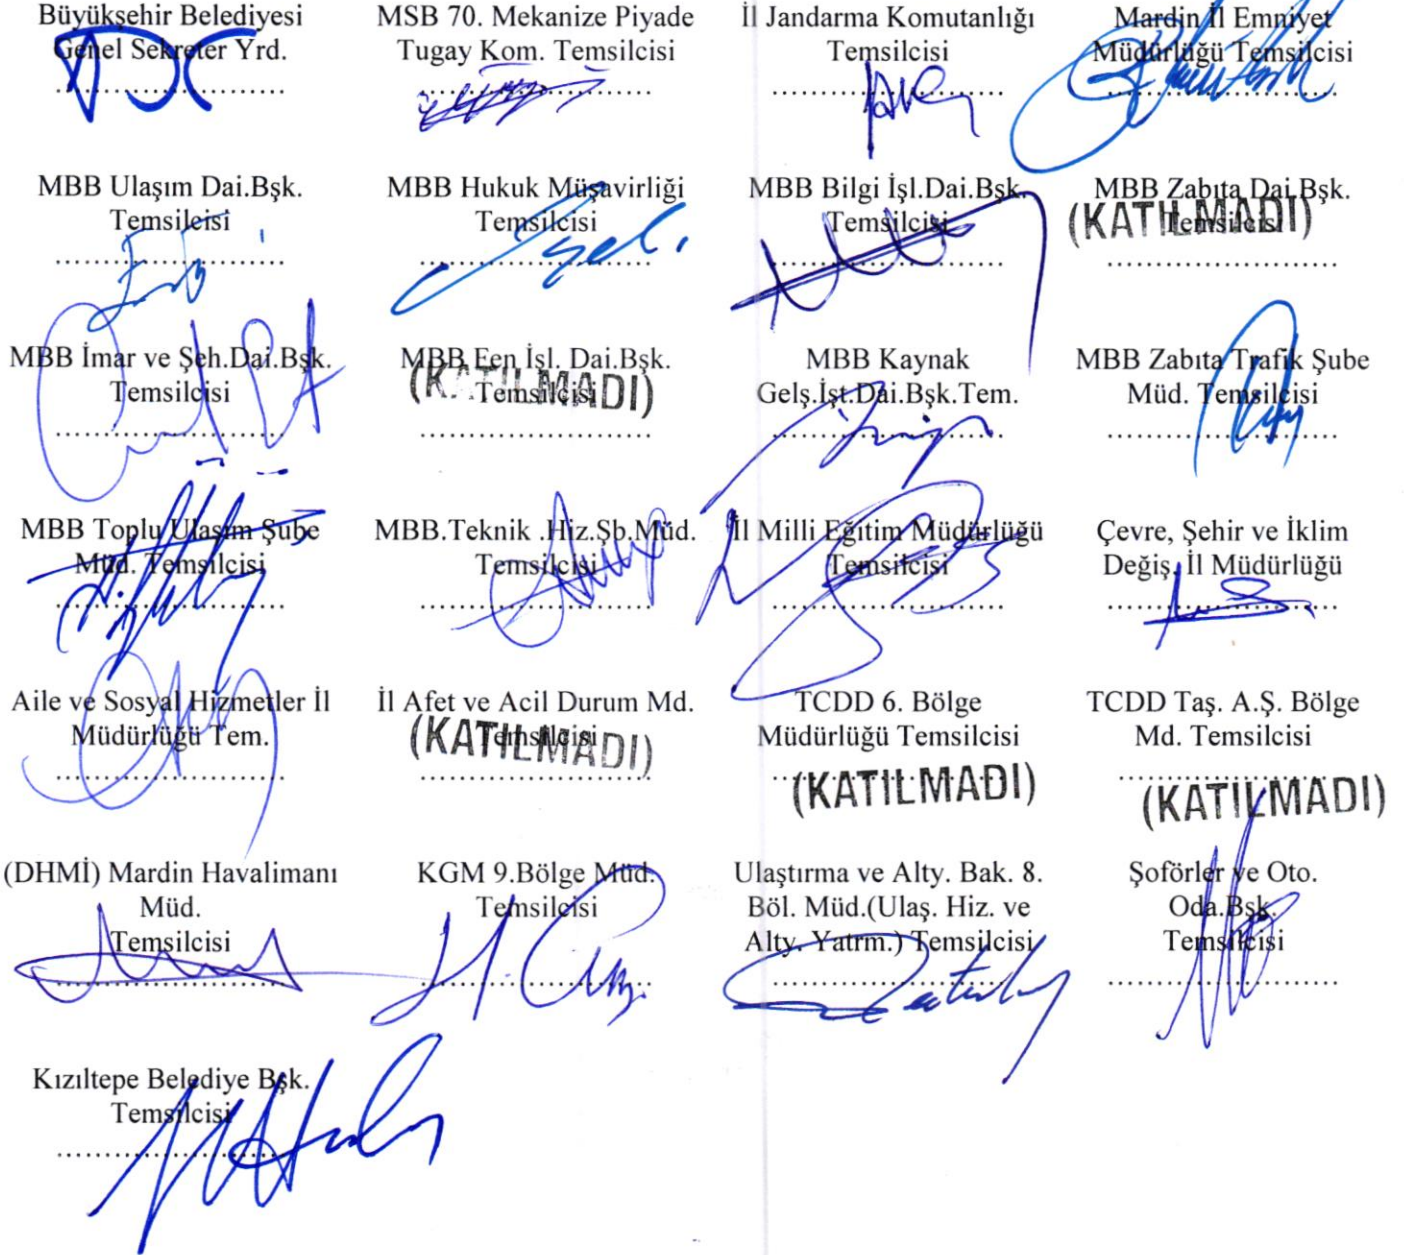 Büyükşehir Belediyesi
Genel Sekreter Yrd.
MSB 70. Mekanize Piyade
Tugay Kom. Temsilcisi
İl Jandarma Komutanlığı
Temsilcisi
Mardin İl Emniyet
Müdürlüğü Temsilcisi
MBB Ulaşım Dai.Bşk.
Temsilcisi
MBB Hukuk Müşavirliği
Temsilcisi
MBB Bilgi İşl.Dai.Bşk.
Temsilcisi
MBB Zabıta Dai.Bşk.
Temsilcisi
(KATILMADI)
MBB İmar ve Şeh.Dai.Bşk.
Temsilcisi
MBB Fen İşl. Dai.Bşk.
Temsilcisi
(KATILMADI)
MBB Kaynak
Gelş.İşt.Dai.Bşk.Tem.
MBB Zabıta Trafik Şube
Müd. Temsilcisi
MBB Toplu Ulaşım Şube
Müd. Temsilcisi
MBB.Teknik .Hiz.Şb.Müd.
Temsilcisi
İl Milli Eğitim Müdürlüğü
Temsilcisi
Çevre, Şehir ve İklim
Değiş. İl Müdürlüğü
Aile ve Sosyal Hizmetler İl
Müdürlüğü Tem.
İl Afet ve Acil Durum Md.
Temsilcisi
(KATILMADI)
TCDD 6. Bölge
Müdürlüğü Temsilcisi
(KATILMADI)
TCDD Taş. A.Ş. Bölge
Md. Temsilcisi
(KATILMADI)
(DHMİ) Mardin Havalimanı
Müd.
Temsilcisi
KGM 9.Bölge Müd.
Temsilcisi
Ulaştırma ve Alty. Bak. 8.
Böl. Müd.(Ulaş. Hiz. ve
Alty. Yatrm.) Temsilcisi
Şoförler ve Oto.
Oda.Bşk.
Temsilcisi
Kızıltepe Belediye Bşk.
Temsilcisi